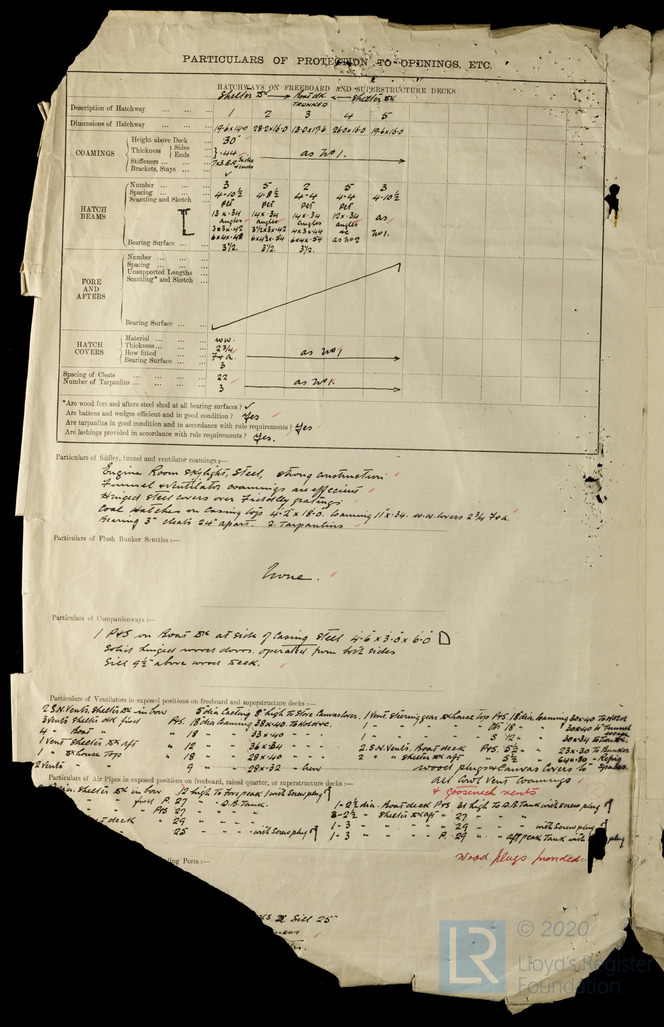 PARTICULARS OF PROTECTION TO OPENINGS, ETC.
HATCHWAYS ON FREEBOARD AND SUPERSTRUCTURE DECKS
Shelter Dk Boat dk Shelter Dk
TRUNKED
Description of Hatchway 1 2 3 4 5
Dimensions of Hatchway 28.2x16.0 26.0x16.0 19.6x16.0
COAMINGS
Height above Deck 30"
Thickness Sides Ends .44 as No 1.
Stiffeners Sides
Brackets, Stays ends
HATCH BEAMS
Number 3 5 2 5 3
Spacing 4-10½ 4-8½ 4-4 4-4 4-10½
Scantling and Sketch
13 x .34 14 x .34 14 x .34 12 x .34 as
angles angles angles angles No 1.
3x3x.42 3½x3x.42 4x3x.44 &c
6x4x.48 6x4½x.54 6x4x.54 as No 2
Bearing Surface 3½. 3½. 3½.
FORE AND AFTERS
Number
Spacing
Unsupported Lengths
Scantling* and Sketch
Bearing Surface
HATCH COVERS
Material W.W.
Thickness 2¾
How fitted F & A. as No 1
Bearing Surface 3
Spacing of Cleats 22
Number of Tarpaulins 3 as No 1.
*Are wood fore and afters steel shod at all bearing surfaces? ✓
Are battens and wedges efficient and in good condition? Yes
Are tarpaulins in good condition and in accordance with rule requirements? Yes
Are lashings provided in accordance with rule requirements? Yes.
Particulars of fiddley, funnel and ventilator coamings:—
Engine Room Skylight, Steel, strong construction
Funnel & Ventilator coamings are efficient
Hinged steel covers over Fiddley gratings
Coal Hatches on Casing tops 4.2 x 18.0. Coaming 11"x.34. W.W. Covers 2¾ F&A.
Bearing 3" cleats 24" apart. 2 Tarpaulins
Particulars of Flush Bunker Scuttles:—
None.
Particulars of Companionways:—
1 P&S on Boat Dk at side of Casing Steel 4.6 x 3.0 x 6.0
Solid hinged wood doors. operated from both sides
Sill 9½" above wood deck.
Particulars of Ventilators in exposed positions on freeboard and superstructure decks:—
2 S.N. Vents, Shelter Dk in bow 5 dia Casting 8" high to Store Canvas Cover. 1 Vent Steering gear Dk house top P&S 18 dia Coaming 30x.40 to Hold
3 Vents Shelter dk fwd P&S 18 dia Coaming 38x.40 to Hold &c. 18" 30x.40 to Tunnel escape
4 " Boat " " 18 " 33x.40 " S 12 " 30x.34 to Tank
1 Vent Shelter Dk aft " 12 " 36x.34 " 2. S.N. Vents. Boat deck P&S. 5½ " 23x.30 to Bunker
1 " Dk House Tops " 18 " 28x.40 " 2 " Shelter Dk aft " 5½ " 24x.30 " Refrig Spaces
2 Vents " 9 " 28x.32 " Crew Wood plugs & Canvas Covers to
all Cowl Vent Coamings
& gooseneck vents
Particulars of Air Pipes in exposed positions on freeboard, raised quarter, or superstructure decks:—
dia. Shelter Dk in bow 12 high to Fore peak 1 with Screw plug
" " fwd P. 27 " " D.B. Tank 1-2½ dia. Boat deck P&S 31 high to D.B. Tank with screw plug
2-2½ " Shelter Dk aft " 27 " "
deck " 29 " " 1-3 " " " 29 " " with Screw plug
" 25 " " with Screw plug 1-3 " " P. 29 " aft peak Tank with plug
Wood plugs provided
Ports:—
Sill 25
© 2020
LR
Lloyd's Register
Foundation